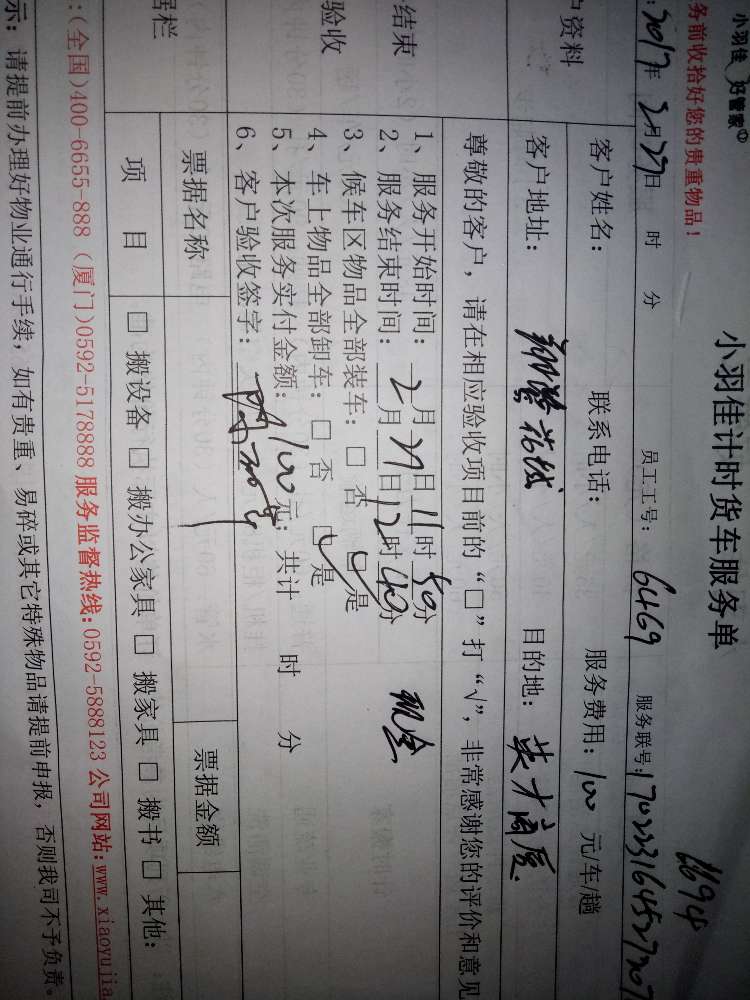 小羽佳 好管家
小羽佳计时货车服务单
6694
务前收拾好您的贵重物品!
:2017年 2月27日 时 分 员工工号: 6469 服务联号:
户资料
客户姓名: 联系电话: 服务费用: 100 元/车/趟
客户地址: 花城 目的地: 英才商厦
尊敬的客户,请在相应验收项目前的“□”打“√”,非常感谢您的评价和意见
结束
验收
1、服务开始时间: 2月27日11时40分
2、服务结束时间: 2月27日12时40分 现金
3、候车区物品全部装车: □ 否 ☑ 是
4、车上物品全部卸车: □ 否 ☑ 是
5、本次服务实付金额: 100 元; 共计 时 分
6、客户验收签字:
据栏
票据名称 票据金额
项 目 □ 搬设备 □ 搬办公家具 □ 搬家具 □ 搬书 □ 其他:
:(全国)400-6655-888 (厦门)0592-5178888 服务监督热线:0592-5888123 公司网站:www.xiaoyujia
示: 请提前办理好物业通行手续, 如有贵重、易碎或其它特殊物品请提前申报, 否则我司不予负责。